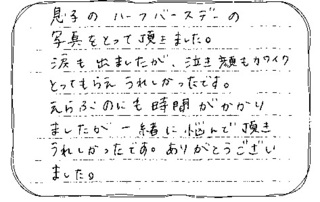 息子の ハーフバースデーの
写真をとって頂きました。
涙も出ましたが、泣き顔もカワイク
とってもらえ うれしかったです。
えらぶのにも 時間が かかり
ましたが 一緒に悩んで 頂き
うれしかったです。ありがとうござい
ました。